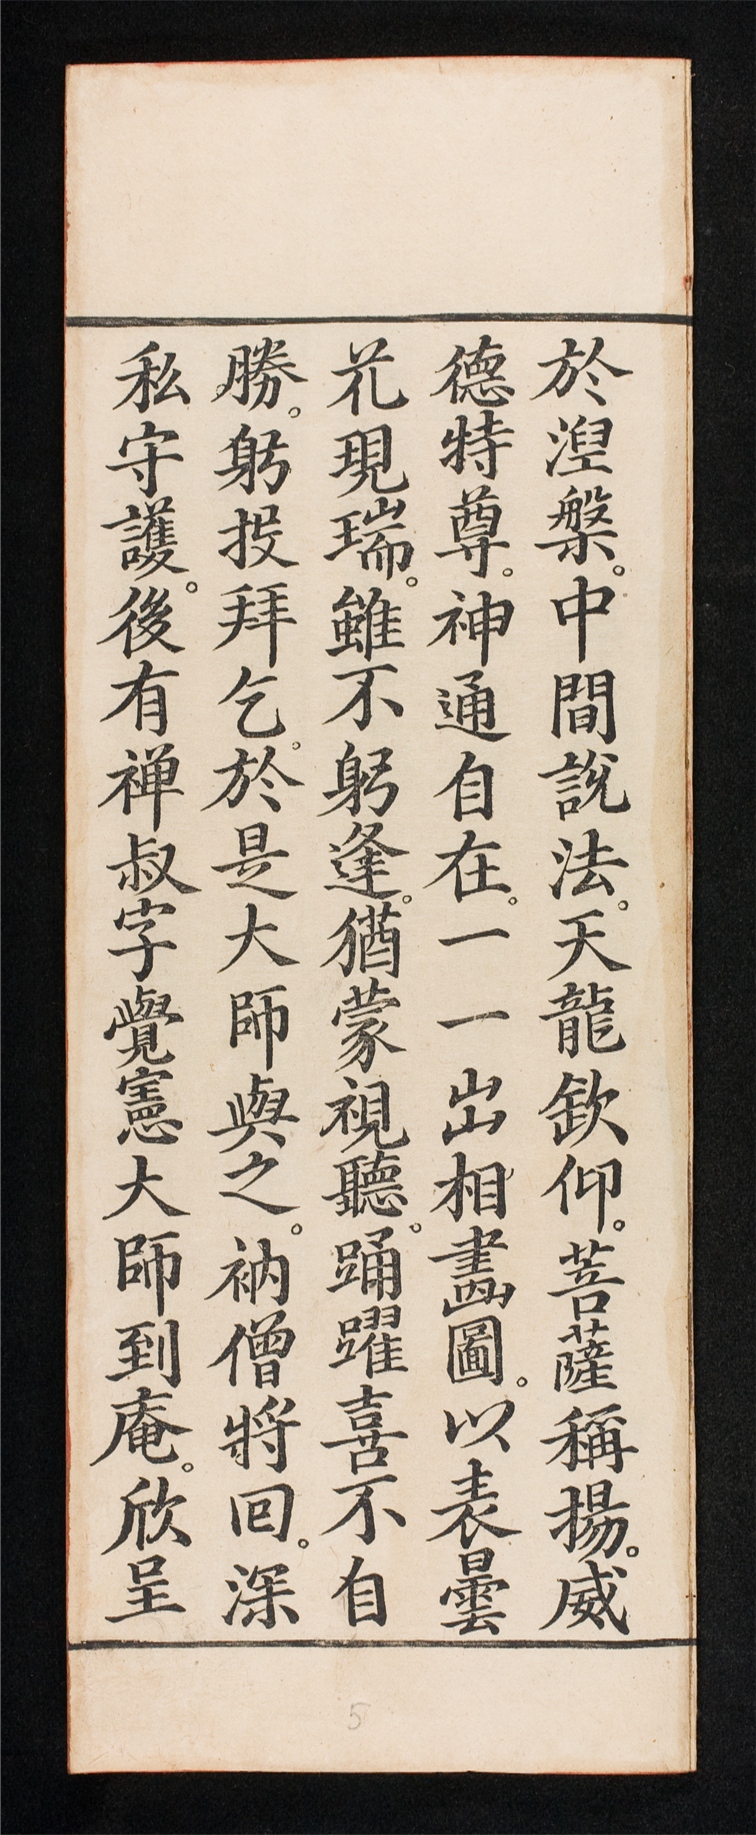 於湼槃。中間說法。天龍欽仰。菩薩稱揚。威
德特尊。神通自在。一一出相畵圖。以表曇
花現瑞。雖不躬逢。猶蒙視聽。踊躍喜不自
勝。躬投拜乞。於是大師與之。衲僧將回。深
私守護。後有禅叔字覺憲大師到庵。欣呈
5